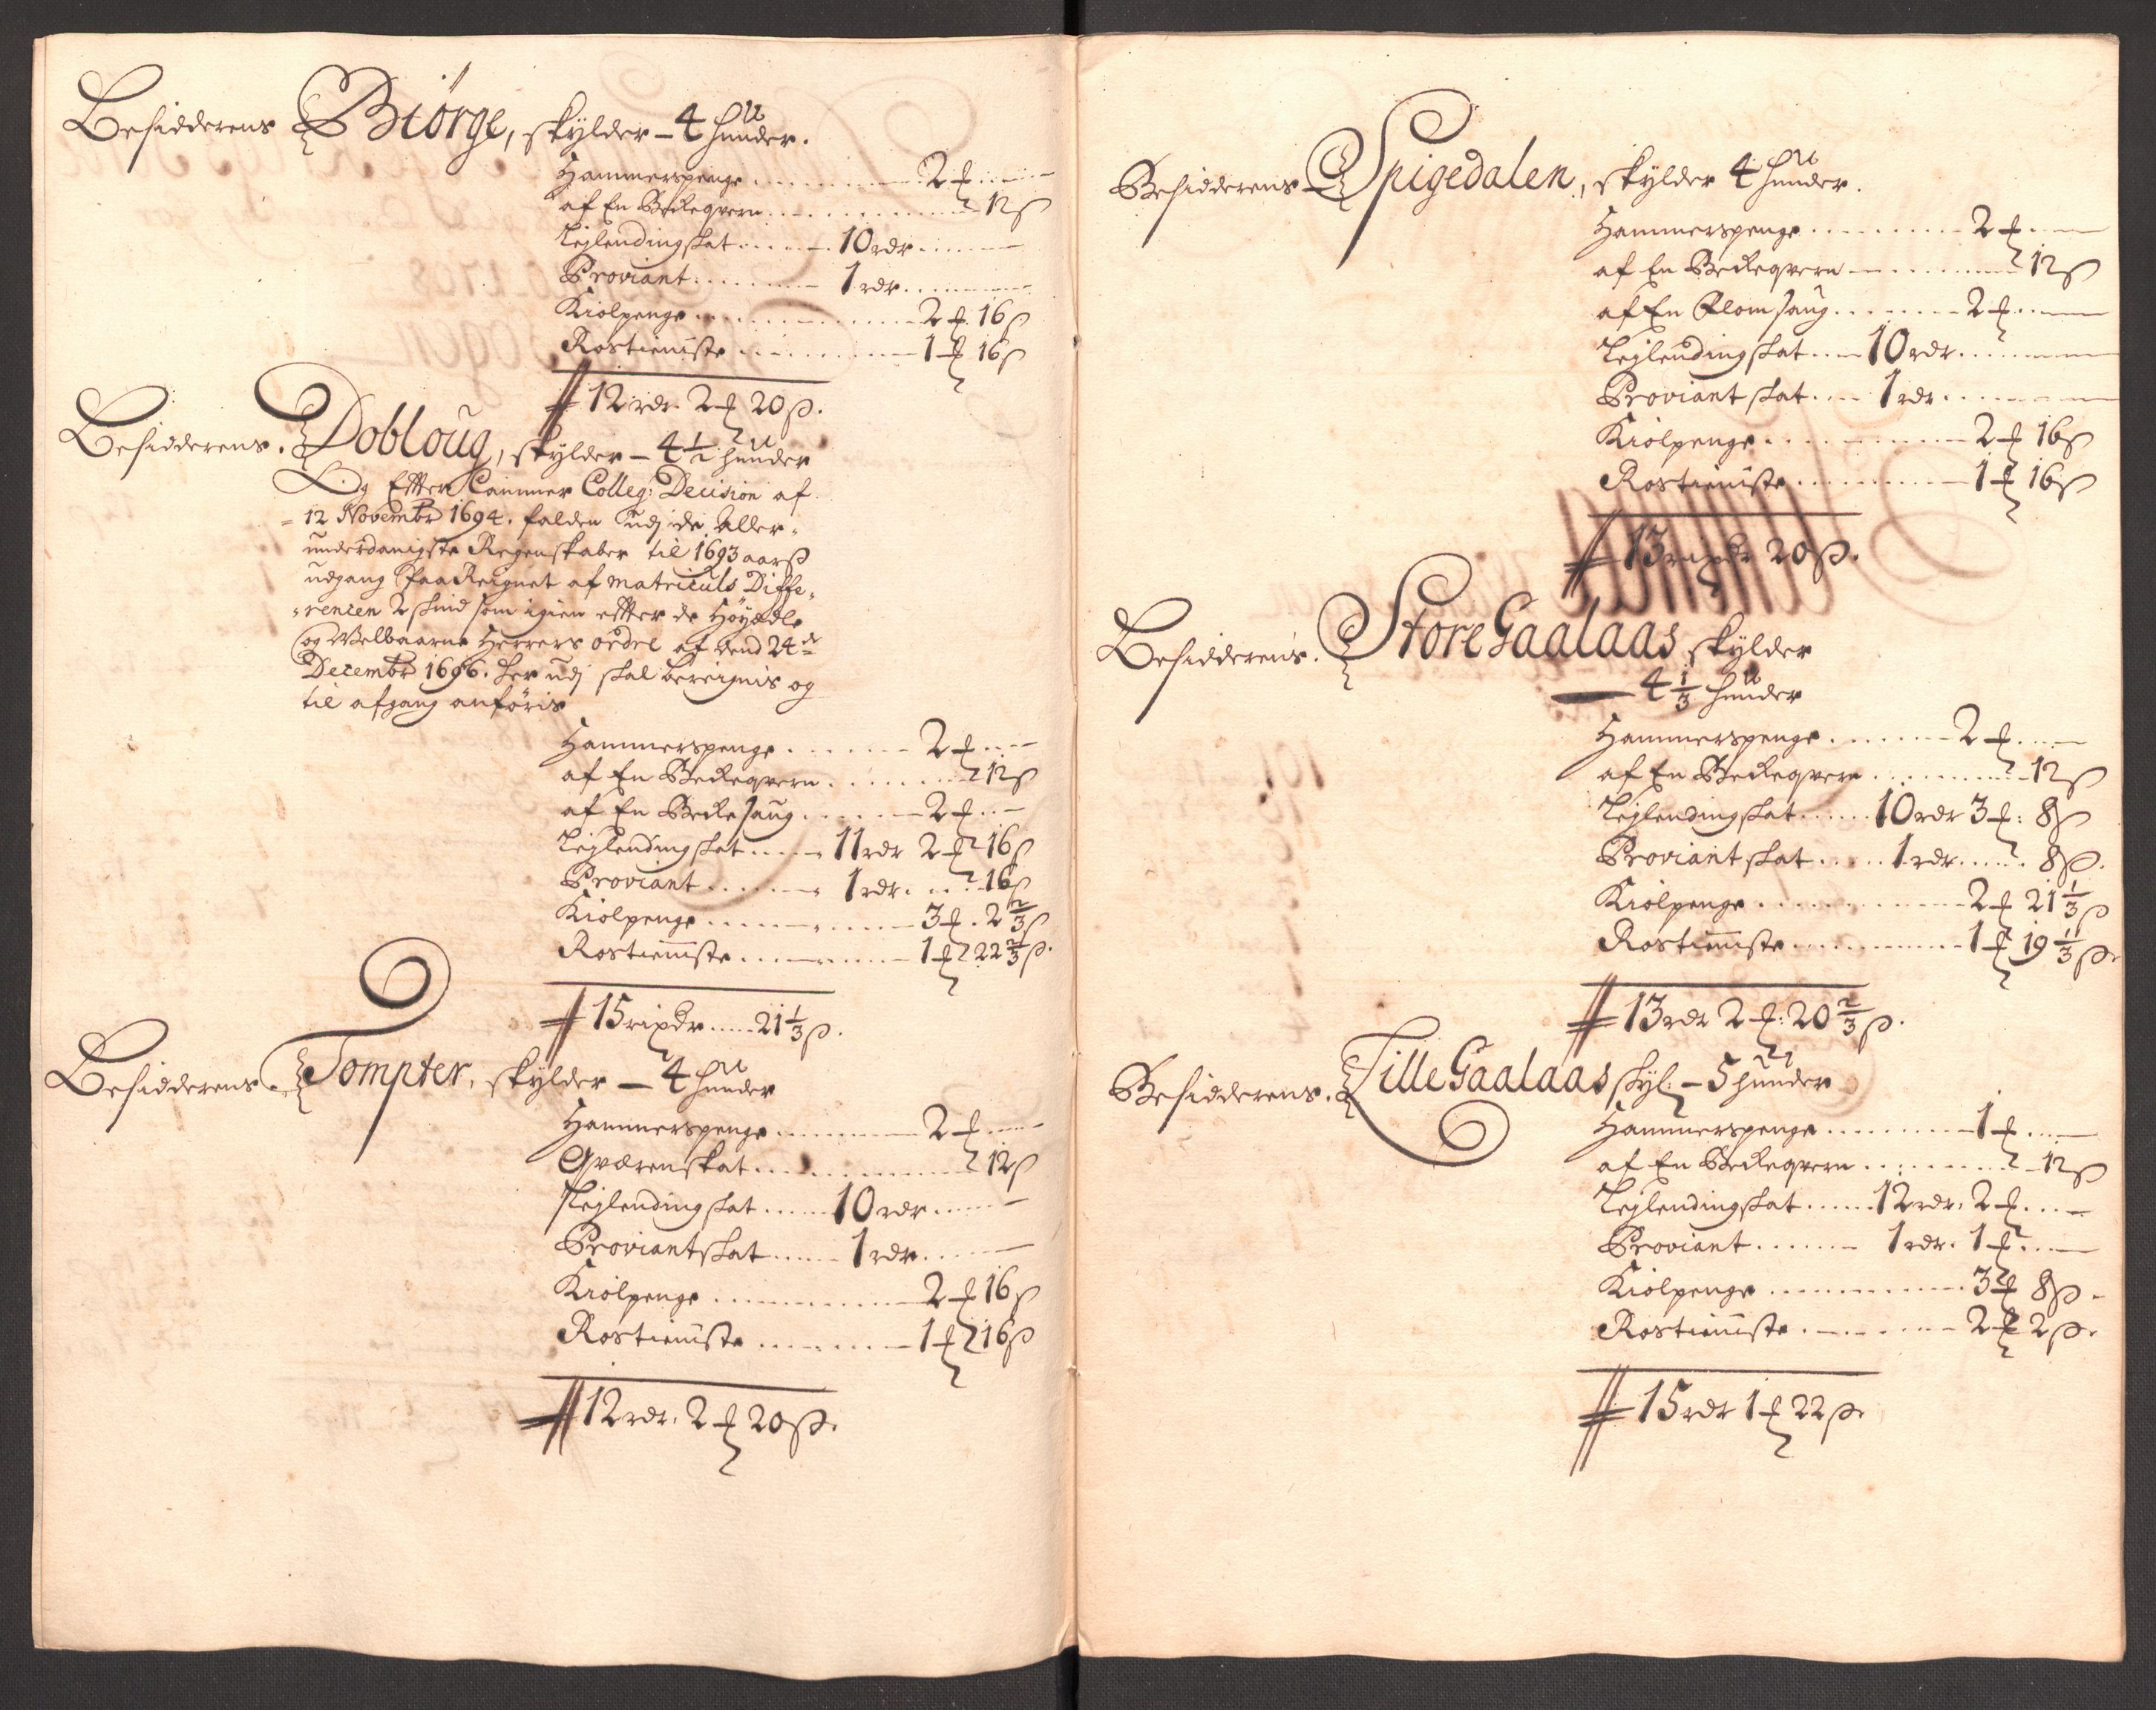 Besidderens Biørge, skylder – 4 huder.
Hammerspenge 2 ƒ
af En Beckeqvern 12 ß
Lejlendingskat 10 rdr
Proviant 1 rdr
Kiølpenge 2 ƒ 16 ß
Rostieniste 1 ƒ 16 ß
12 rdr. 2 ƒ 20 ß.
Besidderens. Dobloug, skylder – 4 1/2 huder
Og Efter Cammer Colleg: Decision af
12 Novembr 1694. falden udj de Aller-
underdanigste Regenskaber til 1693 aarß
udgang paaReignet af matriculs Diffe-
rencen 2 skind som igien efter de Høyædle
og Welbaarne Herrers ordre af dend 24de
Decembr 1696. her udj skal bereignis og
til afgang anføris
Hammerspenge 2 ƒ
af En Beckeqvern 12 ß
af En Beckesaug 2 ƒ
Lejlendingskat 11 rdr 2 ƒ 16 ß
Proviant 1 rdr. 16 ß
Kiølpenge 3 ƒ. 2 2/3 ß
Rostieniste 1 ƒ 22 2/3 ß.
15 rixdr 21 1/3 ß.
Besidderens. Tompter, skylder – 4 huder
Hammerspenge 2 ƒ
Qværenskat 12 ß
Lejlendingskat 10 rdr
Proviantskat 1 rdr
Kiølpenge 2 ƒ 16 ß
Rostieniste 1 ƒ 16 ß
12 rdr. 2 ƒ 20 ß.
Besidderens Spigedalen, skylder 4 huder.
Hammerspenge 2 ƒ
af En Beckeqvern 12 ß
af En Flomsaug 2 ƒ
Lejlendingskat 10 rdr.
Proviantskat 1 rdr.
Kiølpenge 2 ƒ 16 ß
Rostieniste 1 ƒ 16 ß
13 rixdr 20 ß.
Besidderens. Store Gaalaas skylder
4 1/3 huder
Hammerspenge 2 ƒ
af En Beckeqvern 12 ß
Lejlendingskat 10 rdr 3 ƒ: 8 ß
Proviantskat 1 rdr. 8 ß.
Kiølpenge 2 ƒ 21 1/3 ß
Rostieniste 1 ƒ 19 1/3 ß.
13 rdr 2 ƒ: 20 2/3 ß.
Besidderens. Lille Gaalaas skyl: – 5 huder
Hammerspenge 1 ƒ
af En Beckeqvern 12 ß
Lejlendingskat 12 rdr. 2 ƒ
Proviant 1 rdr. 1 ƒ
Kiølpenge 3 ƒ 8 ß
Rostieniste 2 ƒ 2 ß.
15 rdr 1 ƒ 22 ß.